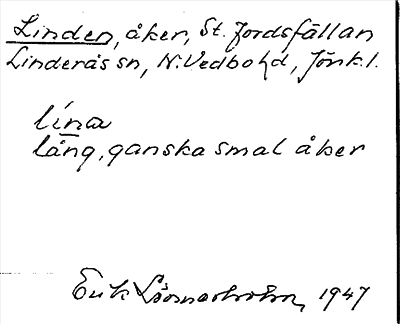 Linden, åker, St. Jordsfällan
Linderås sn, N. Vedbo hd, Jönk. l.
lina
lång, ganska smal åker
Erik 1947